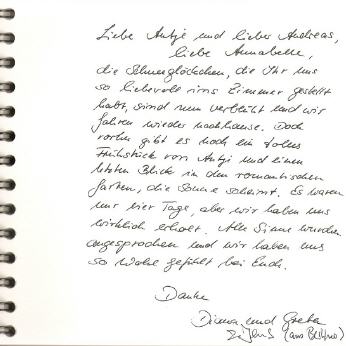 Liebe Antje und lieber Andreas,
liebe Annabelle,
die Schneeglöckchen, die Ihr uns
so liebevoll ins Zimmer gestellt
habt, sind nun verblüht und wir
fahren wieder nachhause. Doch
vorher gibt es noch ein tolles
Frühstück von Antje und einen
letzten Blick in den romantischen
Garten, die Sonne scheint. Es waren
nur vier Tage, aber wir haben uns
wirklich erholt. Alle Sinne wurden
angesprochen und wir haben uns
so wohl gefühlt bei Euch.
Danke
und
(aus